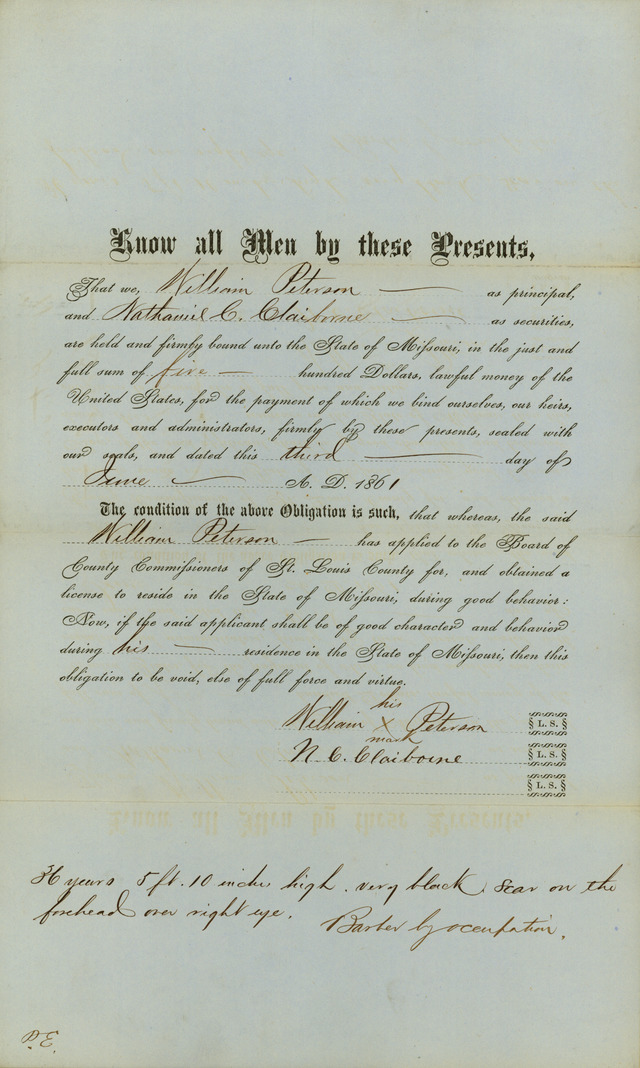 Know all Men by these Presents,
That we, William Peterson as principal,
and Nathaniel C. Claiborne as securities,
are held and firmly bound unto the State of Missouri, in the just and
full sum of five hundred Dollars, lawful money of the
United States, for the payment of which we bind ourselves, our heirs,
executors and administrators, firmly by these presents, sealed with
our seals, and dated this third day of
June A. D. 1861
The condition of the above Obligation is such, that whereas, the said
William Peterson has applied to the Board of
County Commissioners of St. Louis County for, and obtained a
license to reside in the State of Missouri, during good behavior:
Now, if the said applicant shall be of good character and behavior
during his residence in the State of Missouri, then this
obligation to be void, else of full force and virtue.
his
William X Peterson L. S.
mark
N. C. Claiborne L. S.
L. S.
36 years 5 ft. 10 inches high. very black. Scar on the
forehead over right eye. Barber by occupation.
P.E.